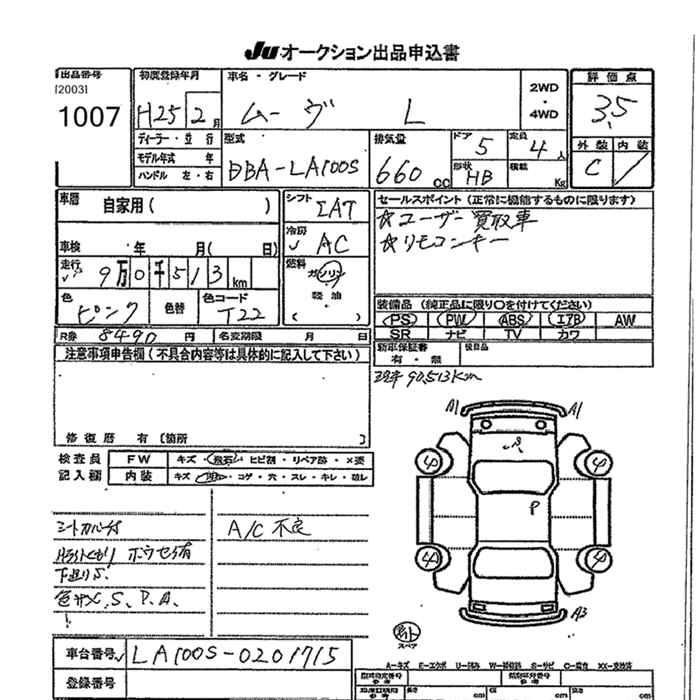 JU オークション出品申込書
出品番号 初度登録年月 車名・グレード 2WD・4WD 評価点
[2003]
1007 H25 2月 ムーヴ L 3.5
ディーラー・並行 型式 排気量 ドア 5 定員 4人 外装 内装
モデル年式 年 DBA-LA100S 660cc 形状 HB 積載 Kg C
ハンドル 左・右
車歴 自家用( ) シフト IAT セールスポイント(正常に機能するものに限ります)
☆ユーザー買取車
車検 年 月( 日) 冷房 AC ☆リモコンキー
走行 9万0千513km 燃料 ガソリン
軽油
( )
色 ピンク 色替 色コード T22 装備品(純正品に限り○を付けてください)
PS PW ABS エアB AW
R券 8490円 名変期限 月 日 SR ナビ TV カワ
注意事項申告欄(不具合内容等は具体的に記入して下さい) 新車保証書 後日品
有・無
90,513km
修復歴 有 [箇所 ]
検査員 FW キズ・飛石・ヒビ割・リペア跡・×要
記入欄 内装 キズ・コゲ・穴・スレ・キレ・破レ
A1 A1
S
P
A3
シートカバー付 A/C不良
ボウセイ有
下廻りS
色サメ, S, P, A,
スペア
車台番号 LA100S-0201715
登録番号
A-キズ E-エクボ U-凹み W-補修跡 S-サビ C-腐食 XX-交換済